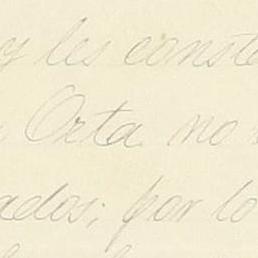 y les consta
Orta no
ados; por lo